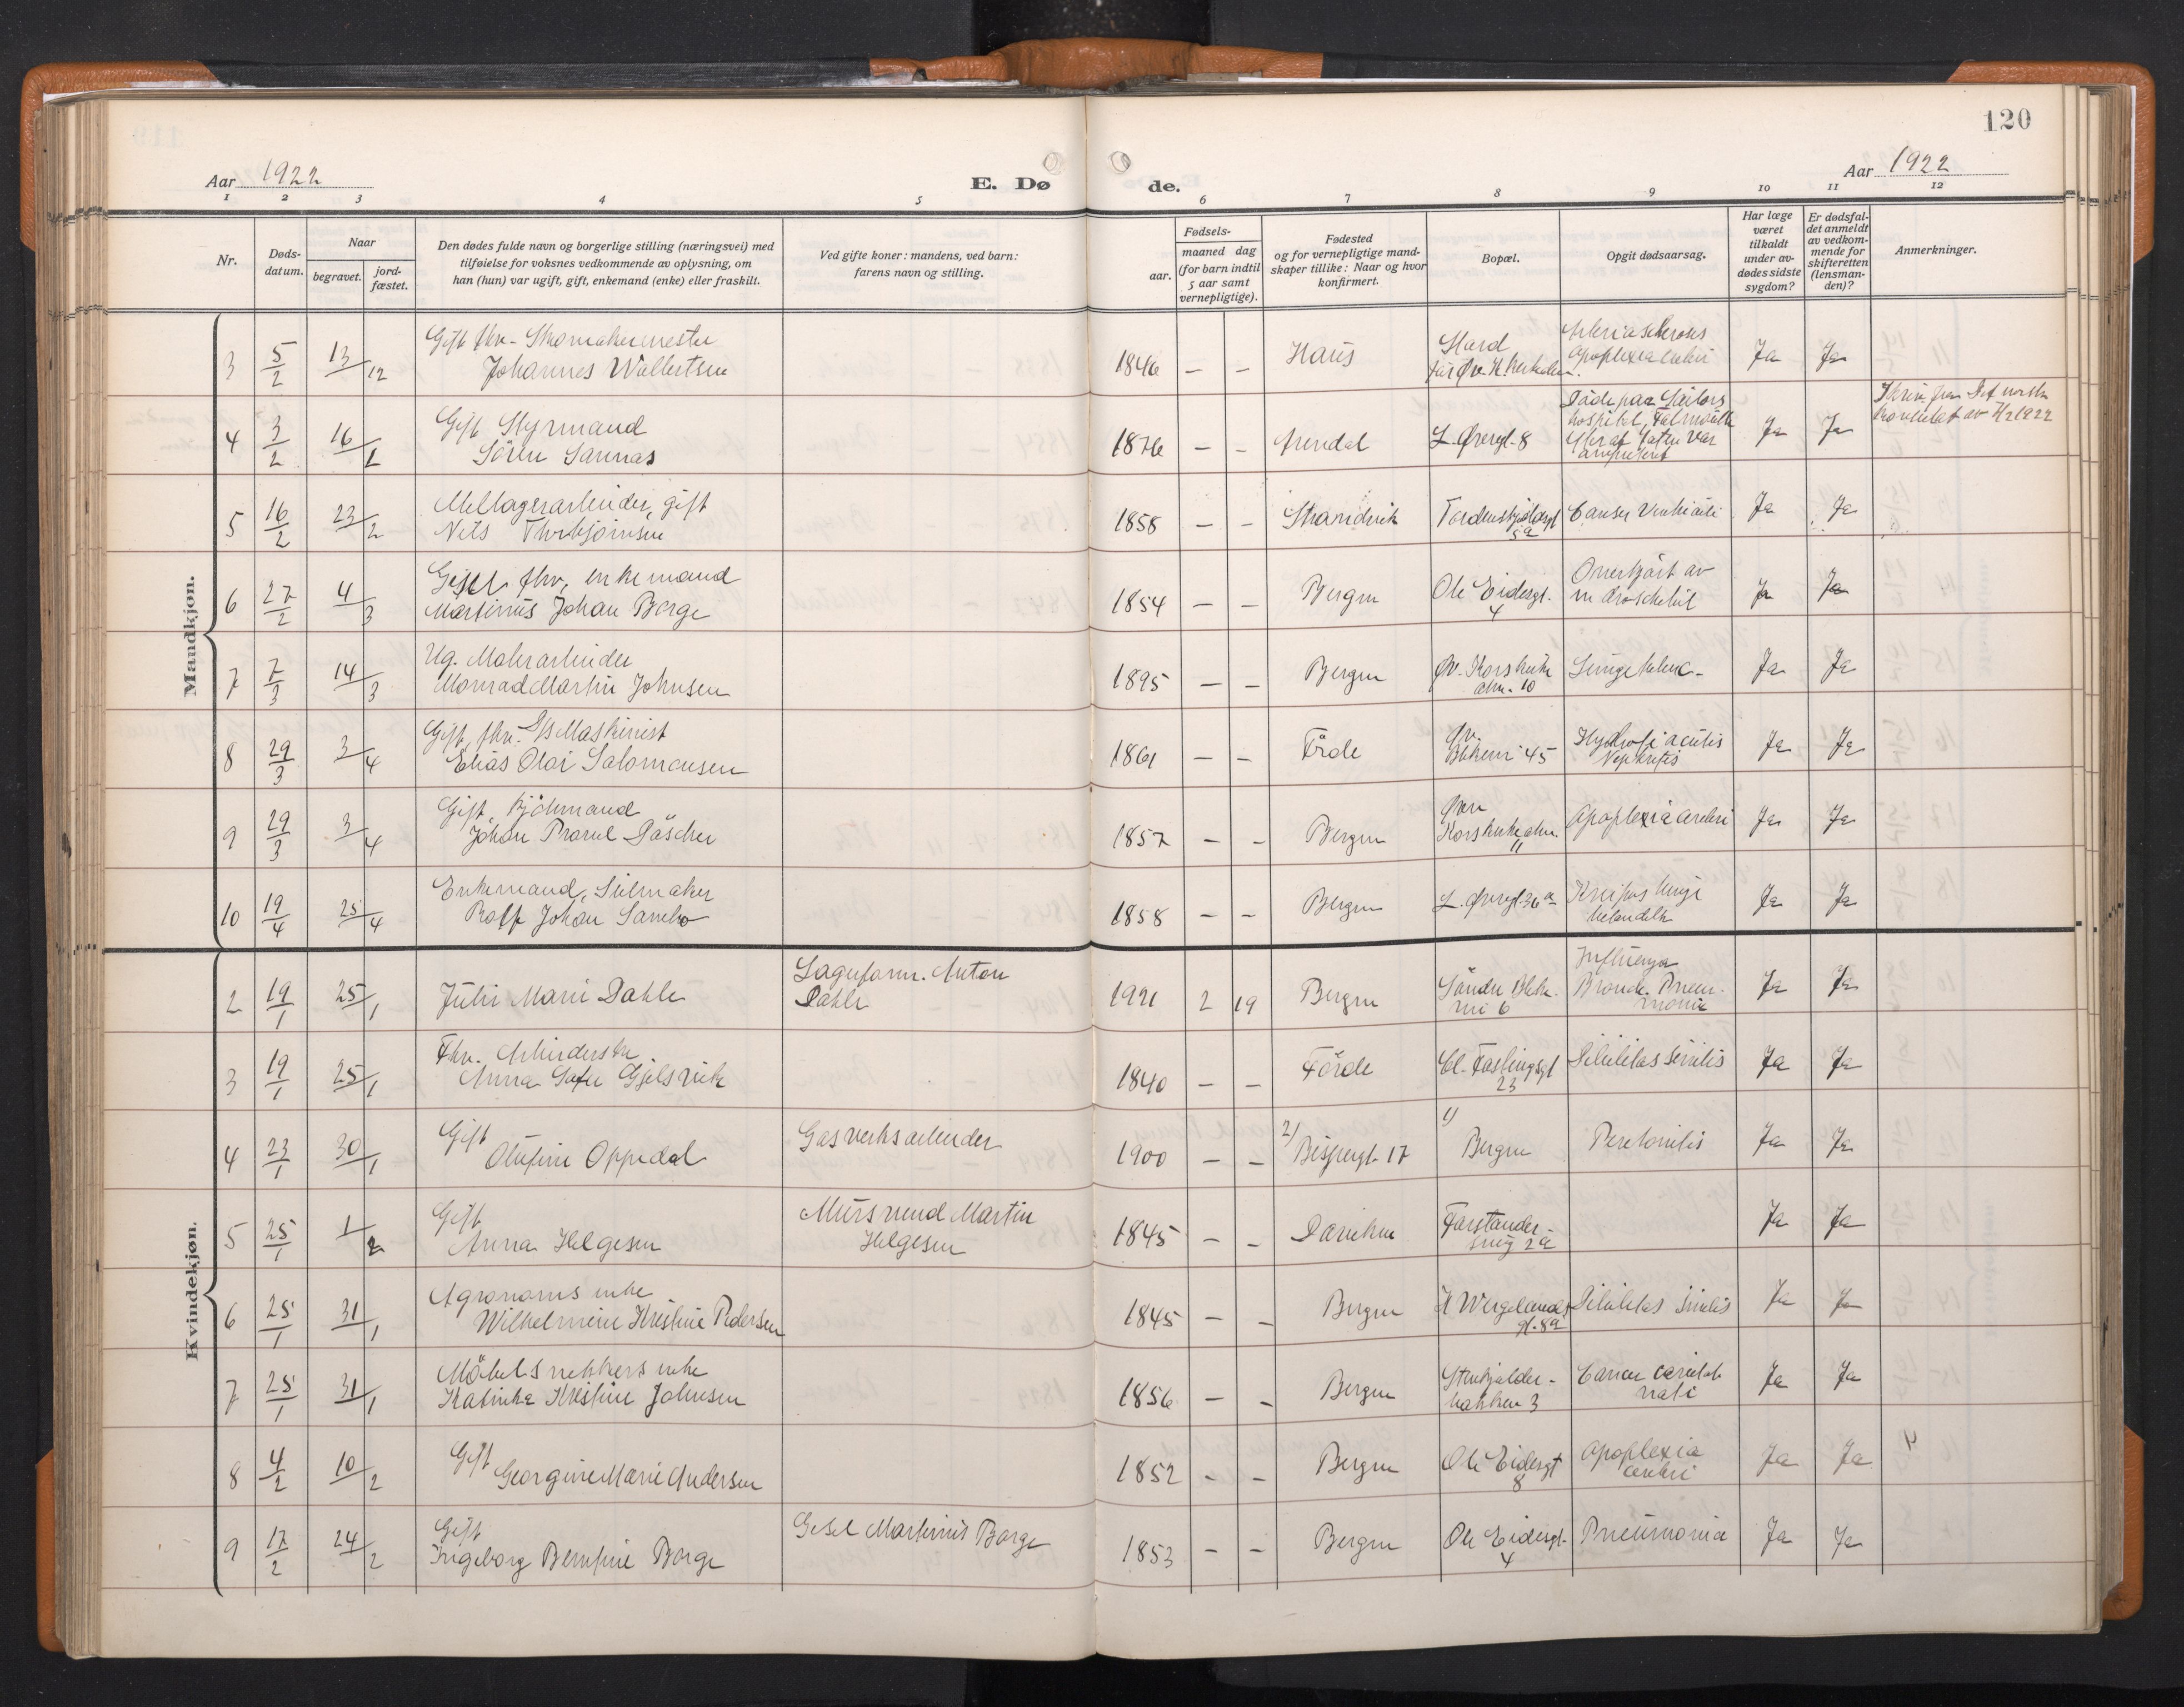 120
Aar 1922
E. Dø
de.
Aar 1922
1 2 3 4 5 6 7 8 9 10 11 12
Nr.
Døds-
datum.
Naar
begravet.
jord-
fæstet.
Den dødes fulde navn og borgerlige stilling (næringsvei) med
tilføielse for voksnes vedkommende av oplysning, om
han (hun) var ugift, gift, enkemand (enke) eller fraskilt.
Ved gifte koner: mandens, ved barn:
farens navn og stilling.
Fødsels-
aar.
maaned dag
(for barn indtil
5 aar samt
vernepligtige).
Fødested
og for vernepligtige mand-
skaper tillike: Naar og hvor
konfirmert.
Bopæl.
Opgit dødsaarsag.
Har læge
været
tilkaldt
under av-
dødes sidste
sygdom?
Er dødsfal-
det anmeldt
av vedkom-
mende for
skifteretten
(lensman-
den)?
Anmerkninger.
Mandkjøn.
3 5/2 13/12 Gift fhv. Skomakermester
Johannes Wallertsen 1846 – – Haus Ja Ja
4 3/2 16/1 Gift Styrmand
Sören Sannas 1876 – – Arendal L. Øvregt. 8 Døde paa Sailors
hospital, Falmouth Ja Ja
5 16/2 23/2 gift
Nils Thorbjörnsen 1858 – – Strandvik Tordenskjoldsgt
5a Cancer Ventriculi Ja Ja
6 27/2 4/3 fhv, enkemand
Martinus Johan Borge 1854 – – Bergen Ole Eidesgt.
4 Overkjört av
en droschebil Ja Ja
7 7/3 14/3 Ug. Malerarbeider
Monrad Martin Johnsen 1895 – – Bergen Øv. Korskirke
alm. 10 Ja Ja
8 29/3 3/4 Gift, fhv. Maskinist
Elias Olai Salomonsen 1861 – – Förde Øv.
Blekevei 45 Nephritis Ja Ja
9 29/3 3/4 Gift
Johan 1857 – – Bergen Øvre
Korskirkealm.
11 Apoplexia cerebri Ja Ja
10 19/4 25/4 Enkemand, Seilmaker
Rolf Johan Sambo 1858 – – Bergen L. Øvregt. 36a Ja Ja
Kvindekjøn.
2 19/1 25/1 Julie Marie Dahle Anton
Dahle 1921 2 19 Bergen Söndre Blek.
vei 6 Influenza
Bronch. Pneu-
monia Ja Ja
3 19/1 25/1 Fhv. Arbeiderske
Anna Sofie Gjelsvik 1840 – – Förde Cl. Faslingsgt
23 Debilitas senilis Ja Ja
4 23/1 30/1 Gift
Olufine Oppedal Gasverksarbeider 1900 – – 2) Bispengt. 17 1) Bergen Peritonitis Ja Ja
5 25/1 1/2 Gift
Anna Helgesen Mursvend Martin
Helgesen 1845 – – Daviken Forstander-
smug 2a Ja Ja
6 25/1 31/1 Agronoms enke
Wilhelmine Kristine Pedersen 1845 – – Bergen H Wergelands
gt. 8a Debilitas senilis Ja Ja
7 25/1 31/1 Möbelsnekkers enke
Katinka Kristine Johnsen 1856 – – Bergen Stenkjelder-
bakken 3 Ja Ja
8 4/2 10/2 Gift
Georgine Marie Andersen 1852 – – Bergen Ole Eidesgt
8 Apoplexia
cerebri Ja Ja
9 17/2 24/2 Gift
Ingeborg Berntine Borge Gesel Martinus Borge 1853 – – Bergen Ole Eidesgt.
4 Pneumonia Ja Ja